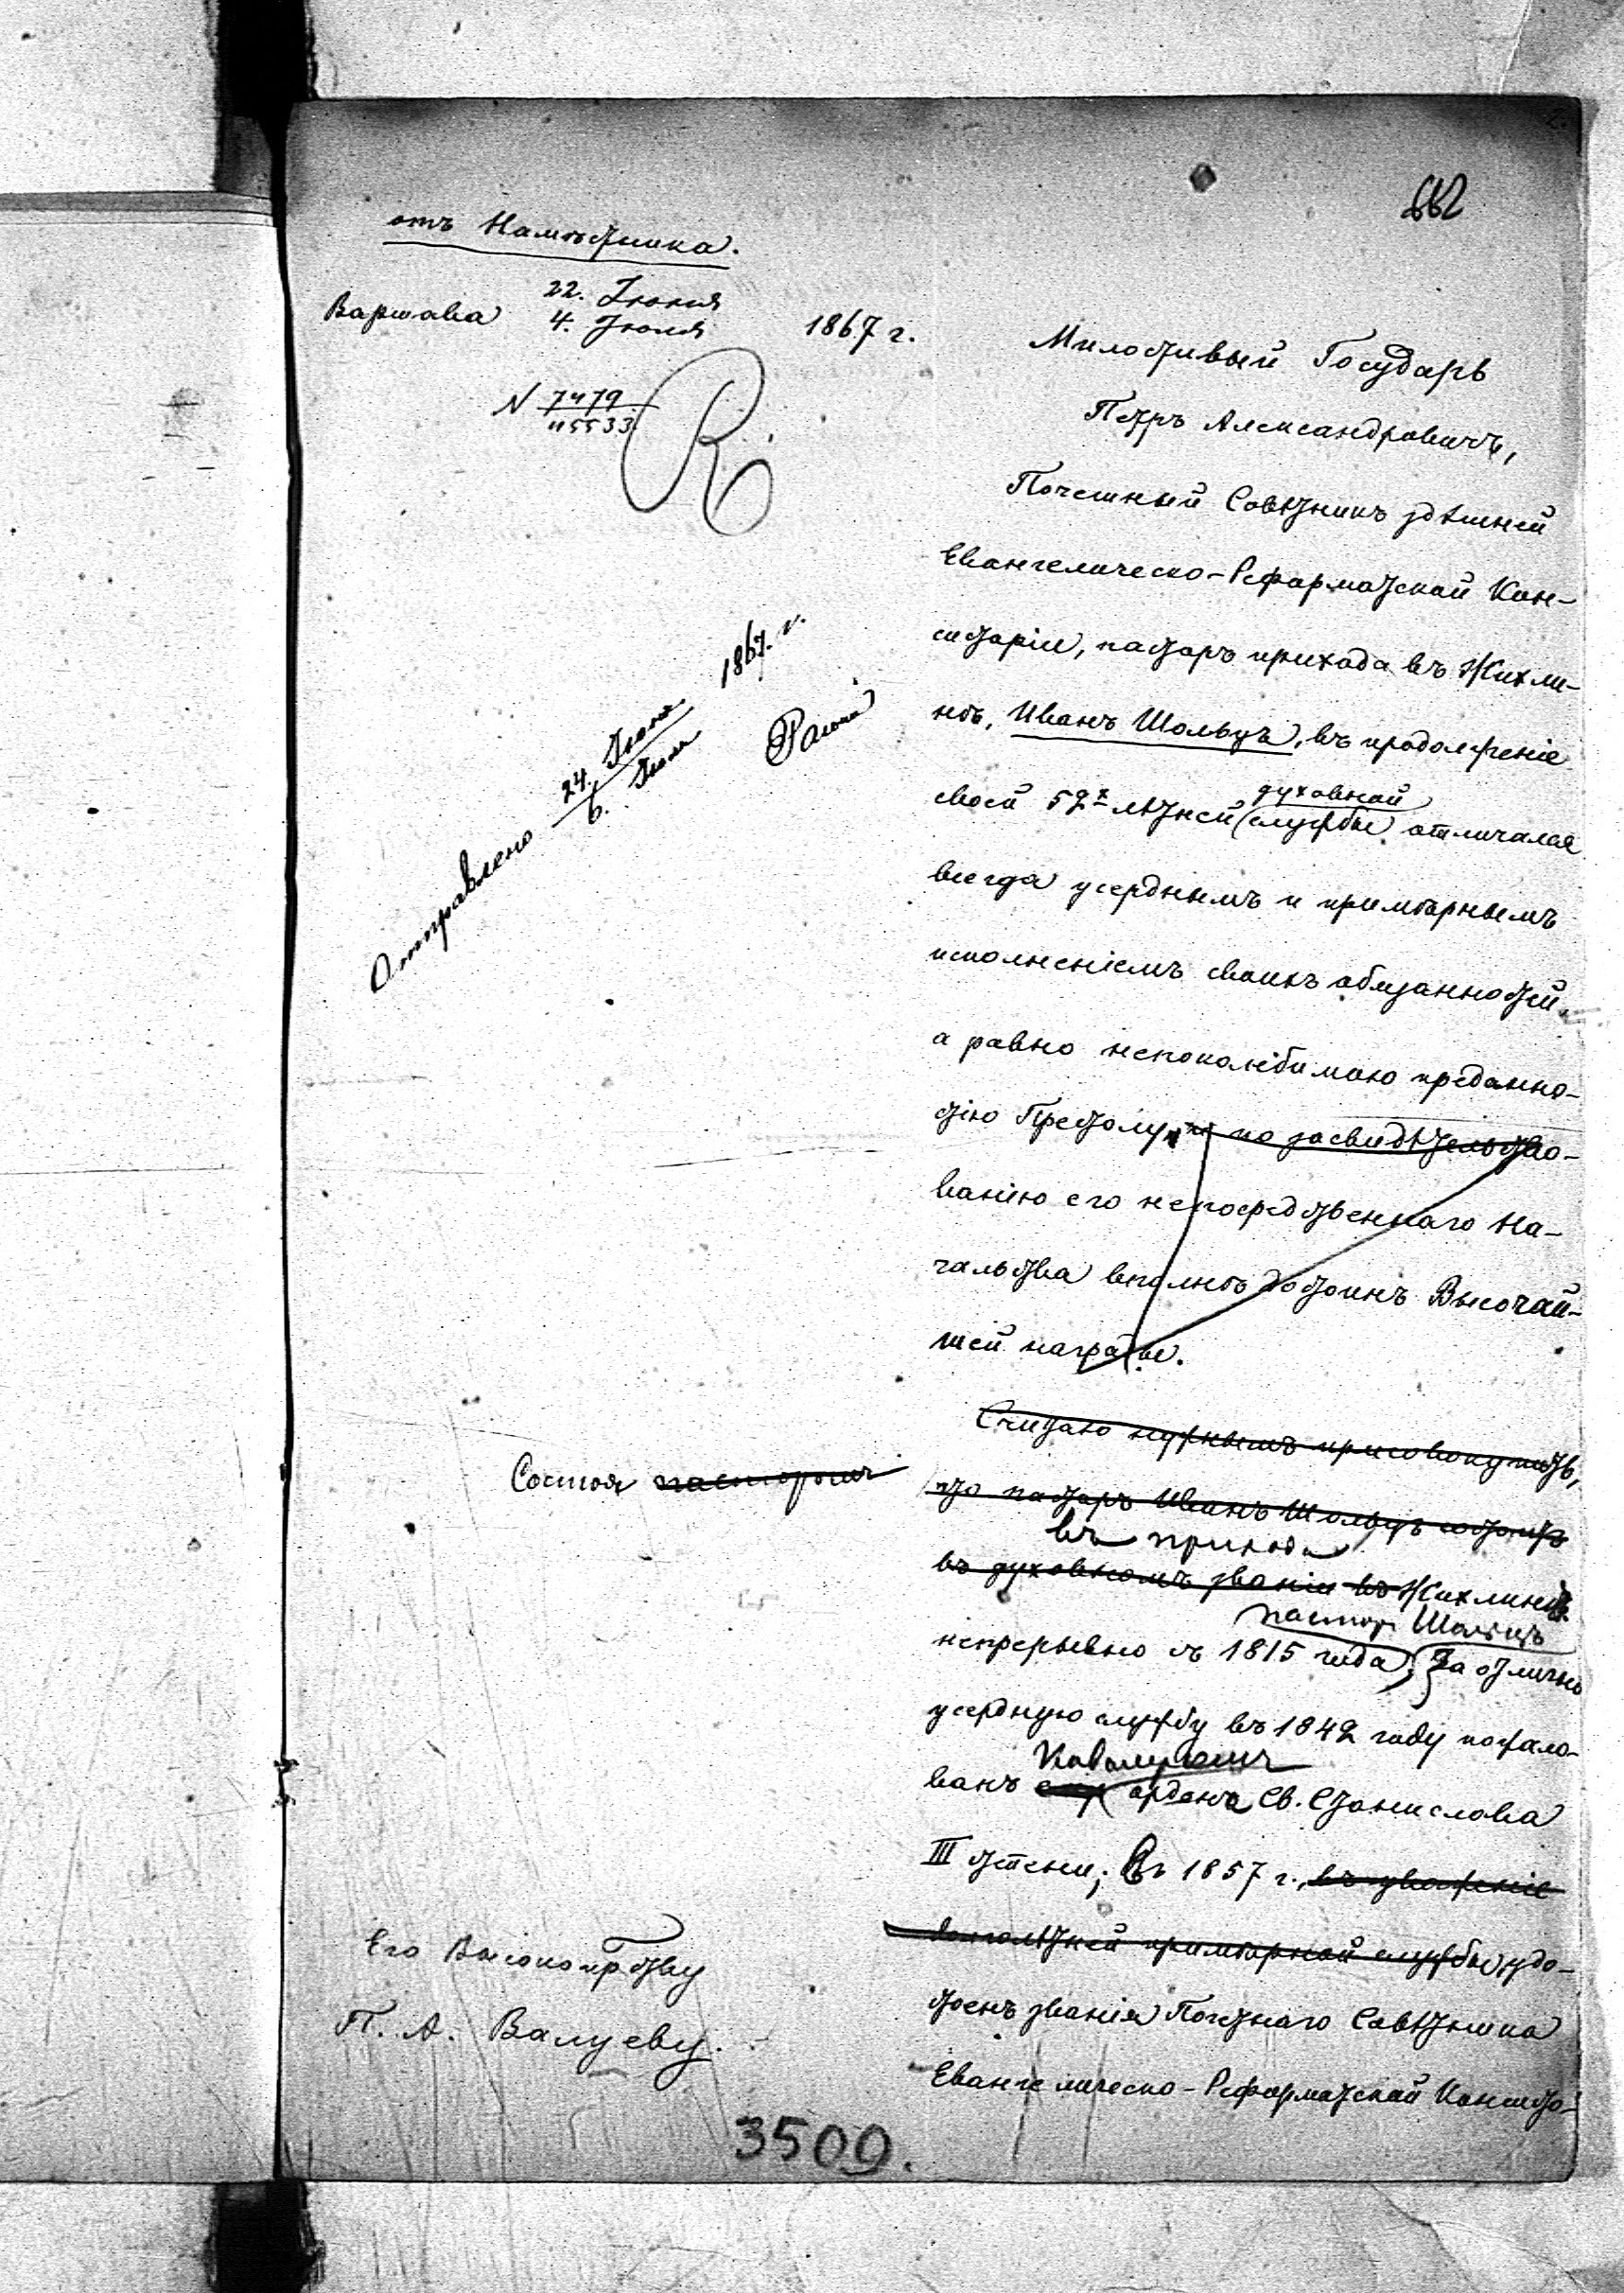 662
отъ Намѣстника.
Варшава 22. Іюня
4. Іюля 1867 г.
N 7479
Отправлено 24. Іюня
6. Іюля 1867. г.
Милостивый Государь
Петръ Александровичъ,
Почетный Совѣтникъ здѣшней
Евангелическо-Реформатской Кон-
систоріи, пасторъ прихода въ Жихли-
нѣ, Иванъ Шольцъ, въ продолженіе
духовной
своей 52х лѣтней службы отличался
всегда усерднымъ и примѣрнымъ
исполненіемъ своихъ обязанностей,
а равно непоколебимою преданно-
стію Престолу, и по засвидѣтельство-
ванію его непосредственнаго На-
чальства вполнѣ достоинъ Высочай-
шей награды.
Считаю нужнымъ присовокупить,
Состоя пасторомъ
что пасторъ Иванъ Шольцъ состоитъ
въ прихода
въ духовномъ званіи въ Жихлинѣ
пасторъ Шольцъ
непрерывно съ 1815 года, За отлично
усердную службу въ 1842 году пожало-
Кавалеромъ
ванъ ордена Св. Станислава
III степени; въ 1857 г., въ уваженіе
долголѣтней примѣрной службы, удо-
стоенъ званія Почетнаго Совѣтника
Евангелическо-Реформатской Консисто-
Его Высокопр-ству
П. А. Валуеву.
3509.